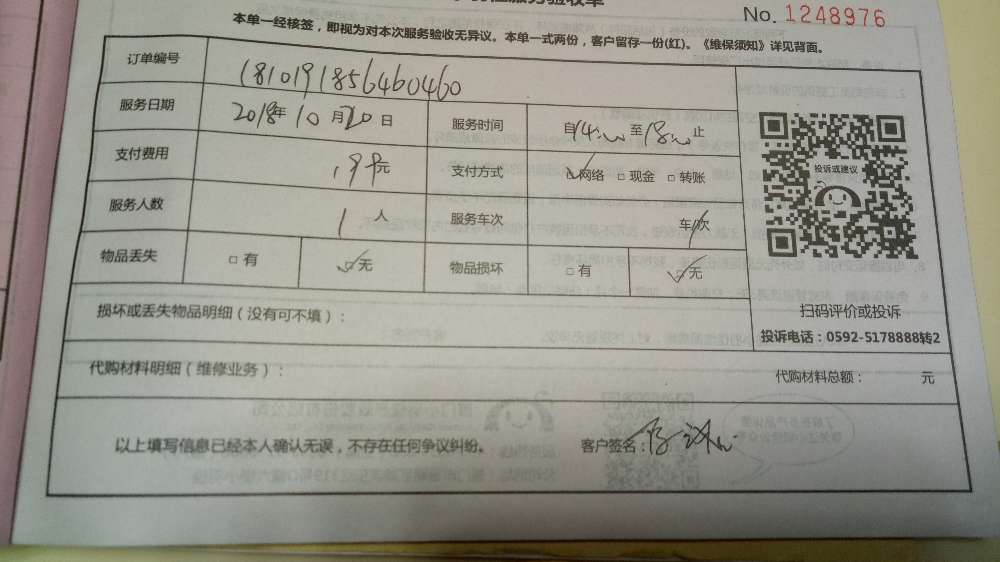 No. 1248976
本单一经核签，即视为对本次服务验收无异议。本单一式两份，客户留存一份(红)。《维保须知》详见背面。
订单编号 1810191856460460
服务日期 2018年10月20日 服务时间 自14:00至18:00止
支付费用 199元 支付方式 ☑网络 □现金 □转账
服务人数 1人 服务车次 车/次
物品丢失 □有 ☑无 物品损坏 □有 ☑无
投诉或建议
扫码评价或投诉
投诉电话：0592-5178888转2
损坏或丢失物品明细（没有可不填）：
代购材料明细（维修业务）： 代购材料总额： 元
以上填写信息已经本人确认无误，不存在任何争议纠纷。 客户签名：